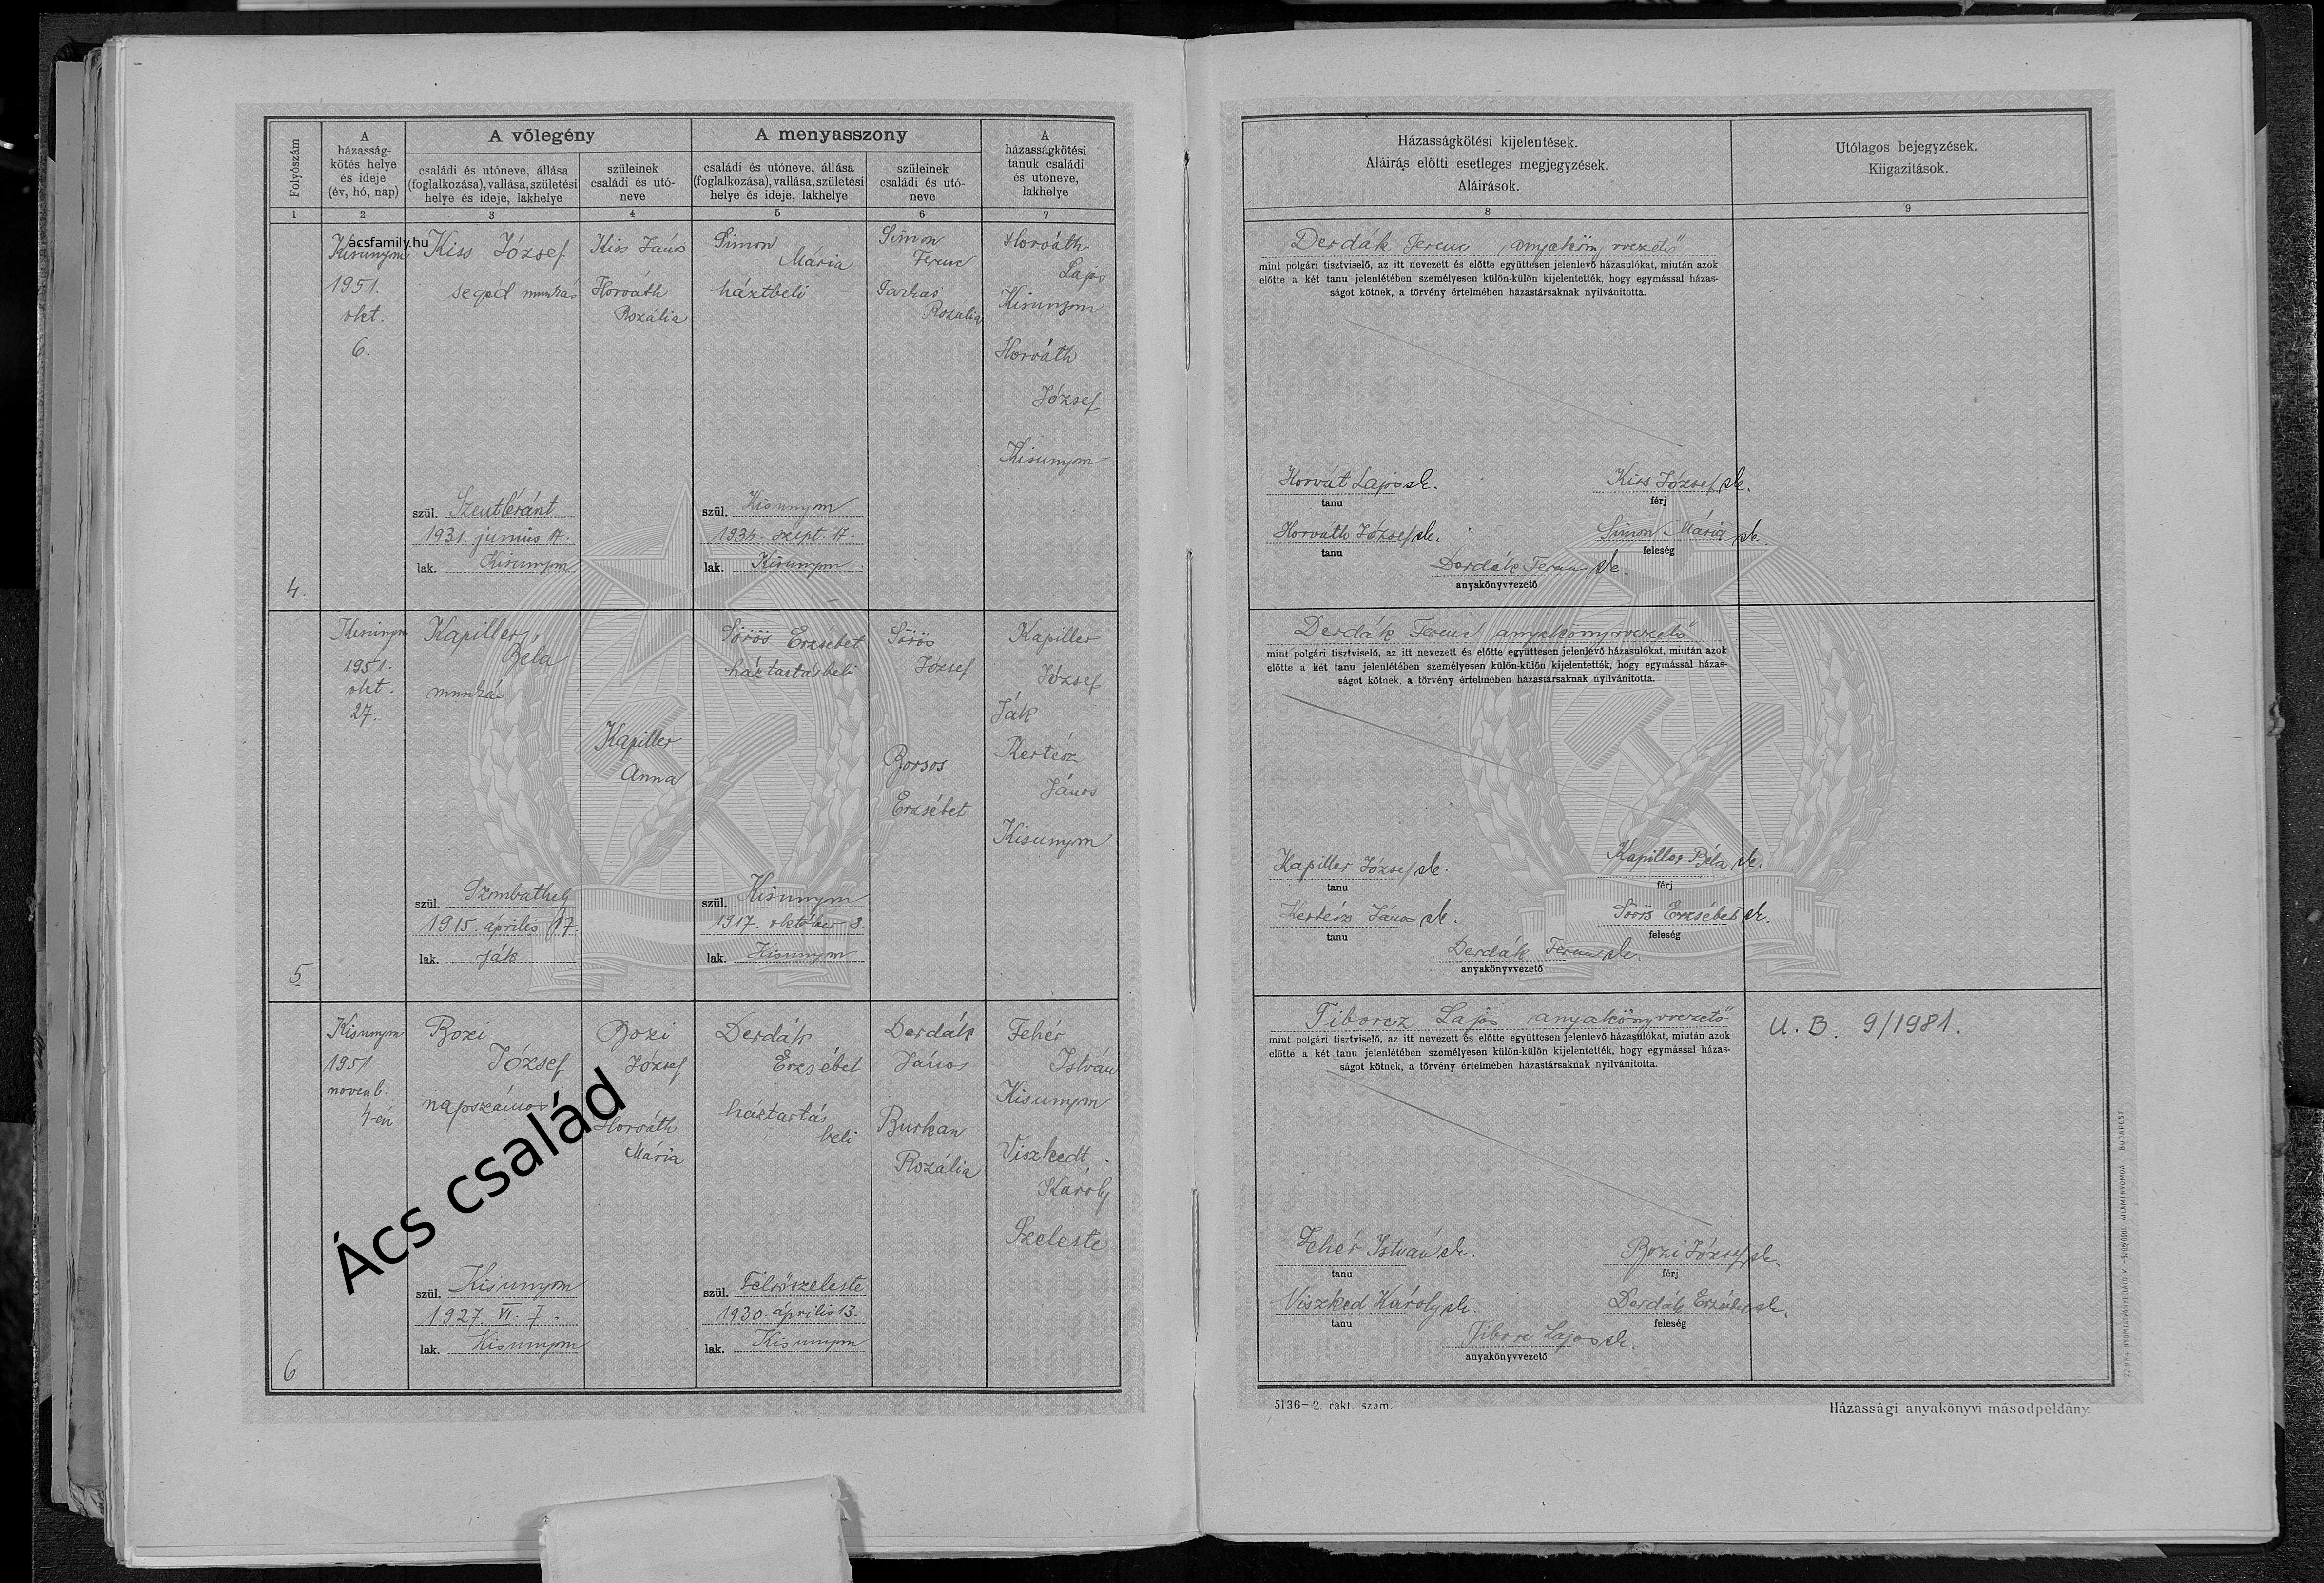 Folyószám
A
házasság-
kötés helye
és ideje
(év, hó, nap)
A vőlegény
családi és utóneve, állása
(foglalkozása), vallása, születési
helye és ideje, lakhelye
szüleinek
családi és utó-
neve
A menyasszony
családi és utóneve, állása
(foglalkozása), vallása, születési
helye és ideje, lakhelye
szüleinek
családi és utó-
neve
A
házasságkötési
tanuk családi
és utóneve,
lakhelye
1
2
3
4
5
6
7
acsfamily.hu
Kisunyom
1951.
okt.
6.
Kiss József
segéd munkás
szül.
1931. junius 17.
lak. Kisunyom
Kiss János
Horváth
Rozália
Simon
Mária
háztbeli
szül. Kisunyom
1934. szept. 17.
lak. Kisunyom
Simon
Ferenc
Farkas
Rozália
Horváth
Lajos
Kisunyom
Horváth
József
Kisunyom
4.
Kisunyom
1951.
okt.
27.
Kapiller
Béla
munkás
szül. Szombathely
1915. április 17.
lak. Ják
Kapiller
Anna
Sörös Erzsébet
háztartásbeli
szül. Kisunyom
1917. október 3.
lak. Kisunyom
Sörös
József
Borsos
Erzsébet
Kapiller
József
Ják
Kertész
János
Kisunyom
5
Kisunyom
1951
novemb.
4-én
Bozi
József
napszámos
szül. Kisunyom
1927. VI. 7.
lak. Kisunyom
Bozi
József
Horváth
Mária
Derdák
Erzsébet
háztartás
beli
szül. Felsőszeleste
1930. április 13.
lak. Kisunyom
Derdák
János
Burkan
Rozália
Fehér
István
Kisunyom
Viszkedt
Károly
Szeleste
6
Ács család
Házasságkötési kijelentések.
Aláirás előtti esetleges megjegyzések.
Aláirások.
Utólagos bejegyzések.
Kiigazitások.
8
9
Derdák Ferenc anyakönyvvezető
mint polgári tisztviselő, az itt nevezett és előtte együttesen jelenlevő házasulókat, miután azok
előtte a két tanu jelenlétében személyesen külön-külön kijelentették, hogy egymással házas-
ságot kötnek, a törvény értelmében házastársaknak nyilvánitotta.
Horvát Lajos sk.
tanu
Kiss József sk.
férj
Horváth József sk.
tanu
Simon Mária sk.
feleség
Derdák Ferenc sk.
anyakönyvvezető
Derdák Ferenc anyakönyvvezető
mint polgári tisztviselő, az itt nevezett és előtte együttesen jelenlevő házasulókat, miután azok
előtte a két tanu jelenlétében személyesen külön-külön kijelentették, hogy egymással házas-
ságot kötnek, a törvény értelmében házastársaknak nyilvánitotta.
Kapiller József sk.
tanu
Kapiller Béla sk.
férj
Kertész János sk.
tanu
Sörös Erzsébet sk.
feleség
Derdák Ferenc sk.
anyakönyvvezető
Tiborcz Lajos anyakönyvvezető
mint polgári tisztviselő, az itt nevezett és előtte együttesen jelenlevő házasulókat, miután azok
előtte a két tanu jelenlétében személyesen külön-külön kijelentették, hogy egymással házas-
ságot kötnek, a törvény értelmében házastársaknak nyilvánitotta.
U. B. 9/1981.
Fehér István sk.
tanu
Bozi József sk.
férj
Viszked Károly sk.
tanu
Derdák Erzsébet sk.
feleség
Tiborc Lajos sk.
anyakönyvvezető
5136-2. rakt. szám.
Házassági anyakönyvi másodpéldány